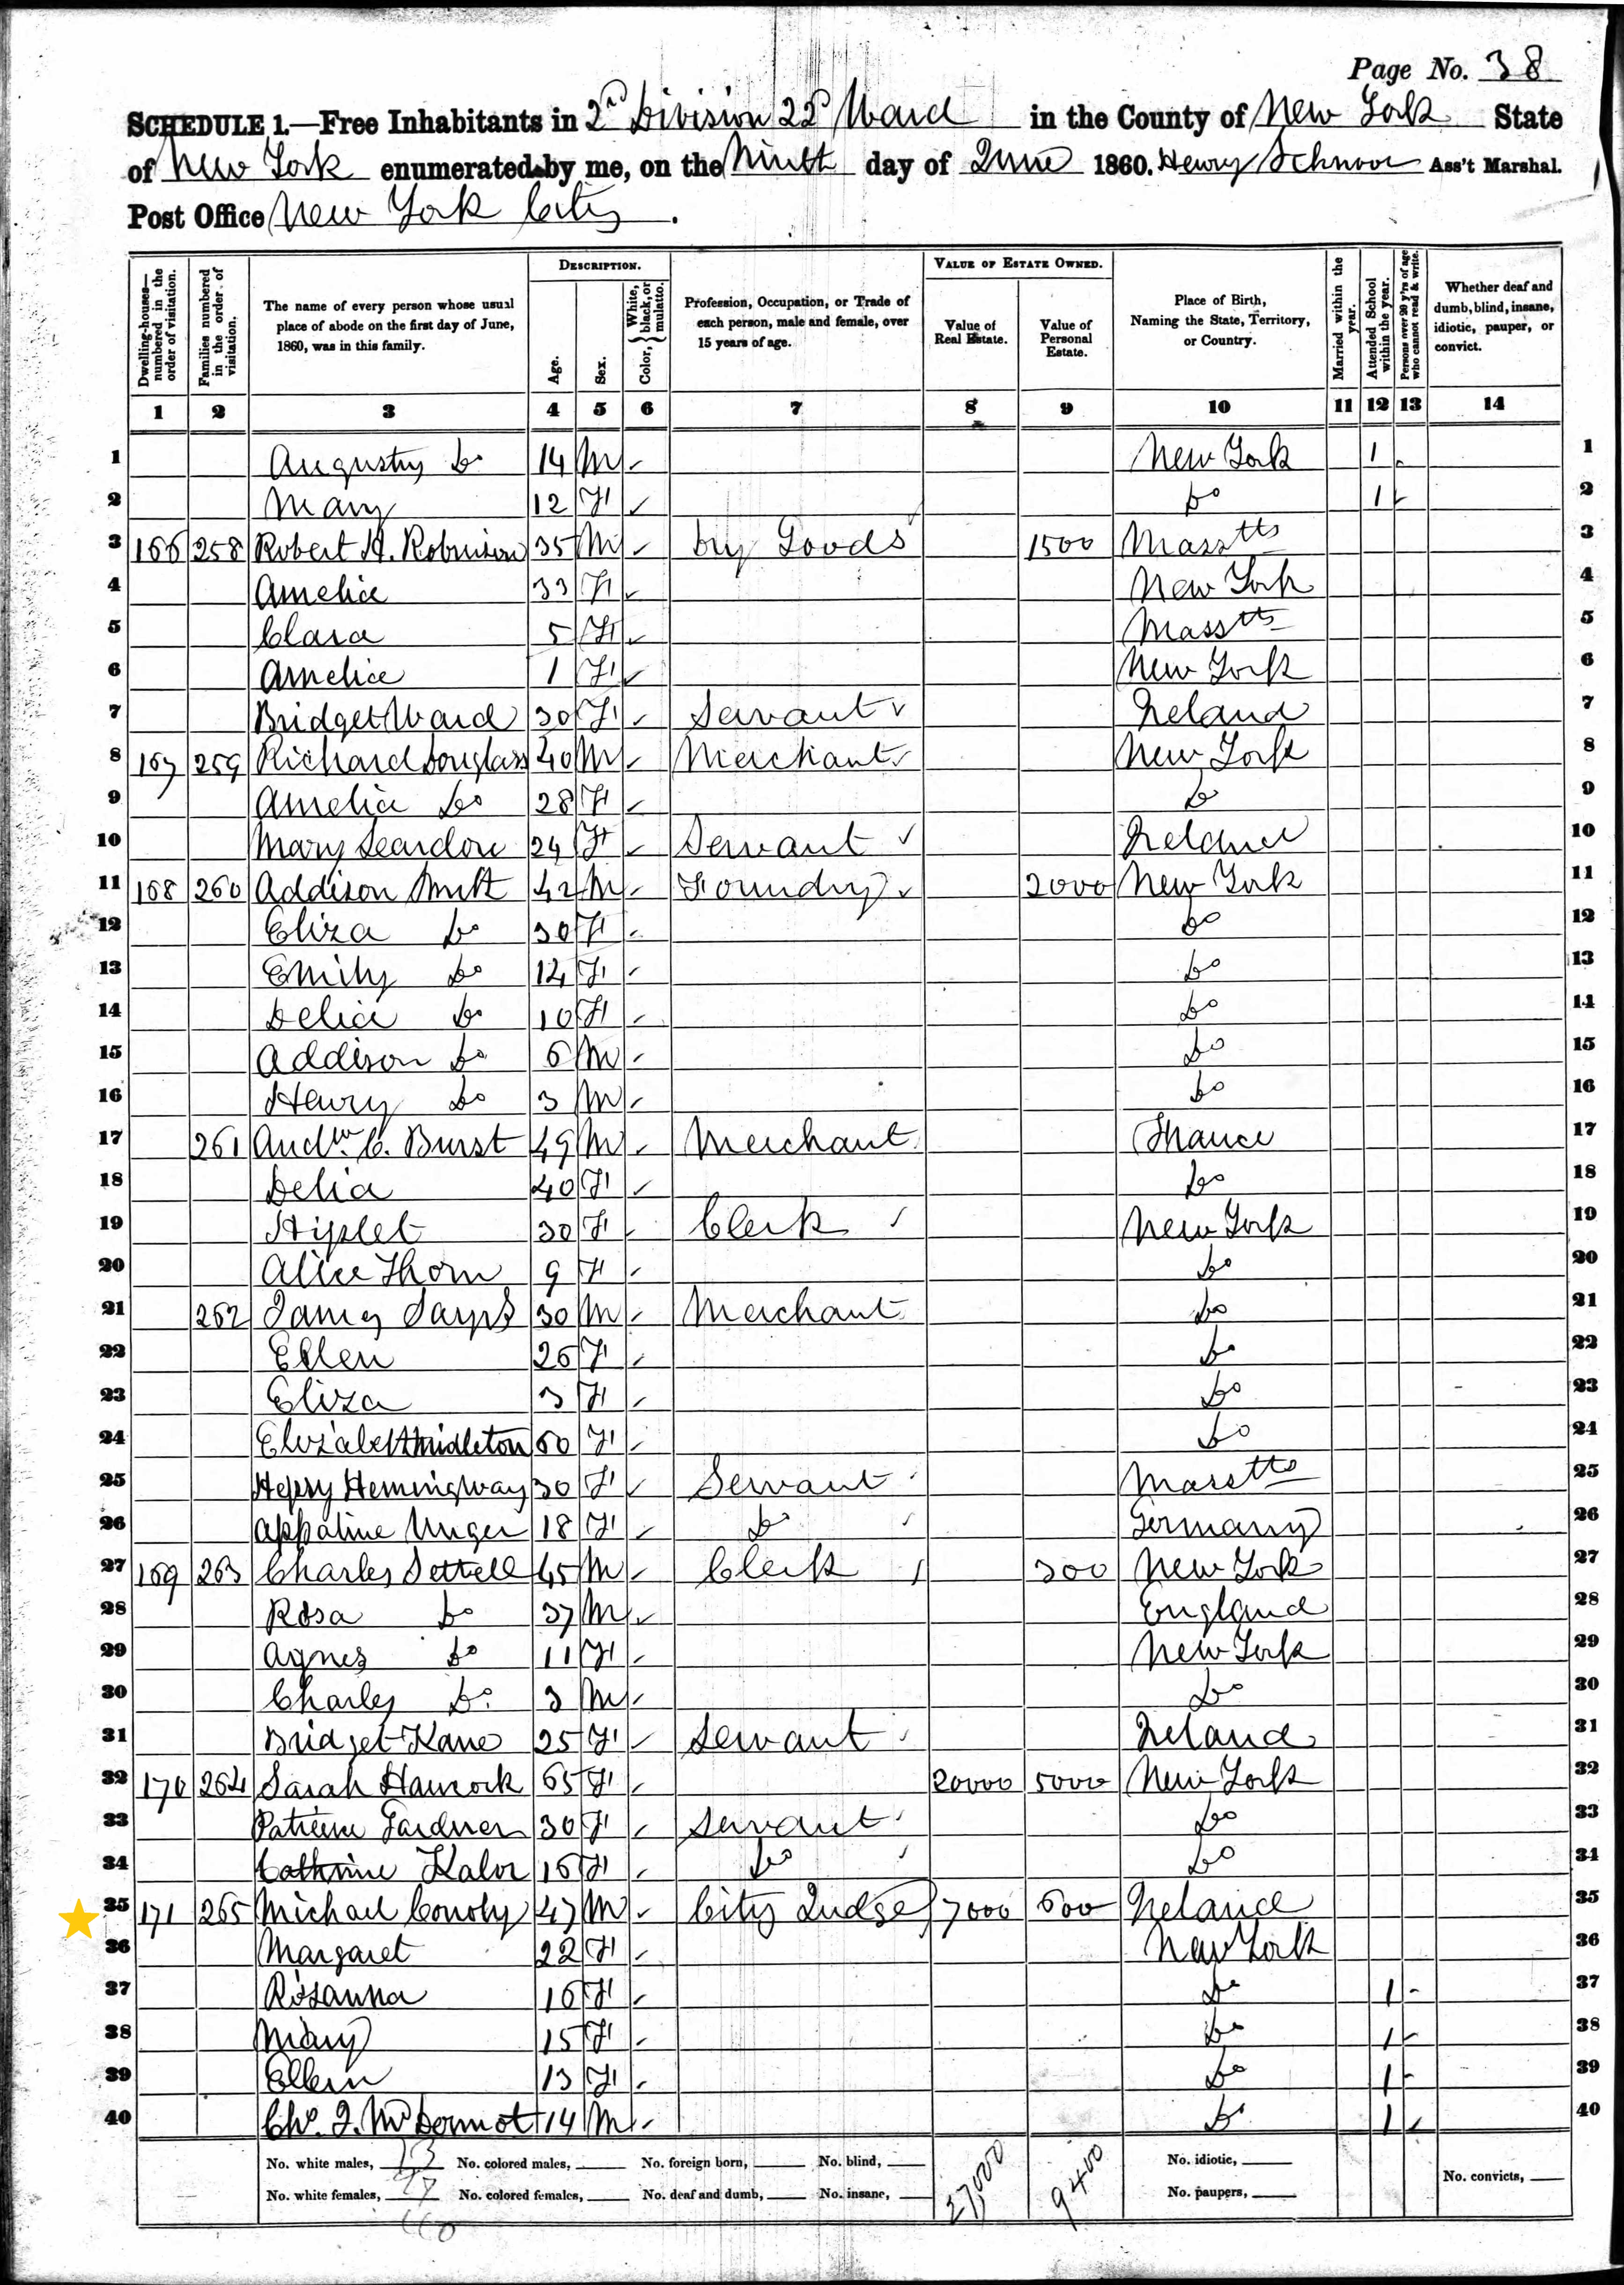 Page No. 38
SCHEDULE 1.—Free Inhabitants in 2d Division 22d Ward in the County of New York State
of New York enumerated by me, on the Ninth day of June 1860. Henry Schnoor Ass't Marshal.
Post Office New York City.
Dwelling-houses—numbered in the order of visitation.
Families numbered in the order of visitation.
The name of every person whose usual place of abode on the first day of June, 1860, was in this family.
DESCRIPTION.
Age.
Sex.
Color, White, black, or mulatto.
Profession, Occupation, or Trade of each person, male and female, over 15 years of age.
VALUE OF ESTATE OWNED.
Value of Real Estate.
Value of Personal Estate.
Place of Birth, Naming the State, Territory, or Country.
Married within the year.
Attended School within the year.
Persons over 20 y'rs of age who cannot read & write.
Whether deaf and dumb, blind, insane, idiotic, pauper, or convict.
1 2 3 4 5 6 7 8 9 10 11 12 13 14
1 Do 14 M New York 1 1
2 Mary 12 F Do 1 2
3 166 258 Robert H. Robinson 35 M Dry Goods 1500 Masstts 3
4 Amelia 33 F New York 4
5 Clara 5 F Masstts 5
6 Amelia 1 F New York 6
7 Bridget Ward 30 F Servant Ireland 7
8 167 259 Richard Douglass 40 M Merchant New York 8
9 Amelia Do 28 F Do 9
10 Mary 24 F Servant Ireland 10
11 168 260 Addison Smith 42 M Foundry 2000 New York 11
12 Eliza Do 30 F Do 12
13 Emily Do 12 F Do 13
14 Delia Do 10 F Do 14
15 Addison Do 6 M Do 15
16 Henry Do 3 M Do 16
17 261 Andw. C. Burst 49 M Merchant France 17
18 Delia 40 F Do 18
19 30 F Clerk New York 19
20 Alice Thorn 9 F Do 20
21 262 James 30 M Merchant Do 21
22 Ellen 26 F Do 22
23 Eliza 3 F Do 23
24 Elizabeth Midleton 60 F Do 24
25 Hepsy Hemingway 30 F Servant Masstts 25
26 Appoline Unger 18 F Do Germany 26
27 169 263 Charles Settell 45 M Clerk 300 New York 27
28 Rosa Do 37 M England 28
29 Agnes Do 11 F New York 29
30 Charles Do. 3 M Do 30
31 Bridget Kane 25 F Servant Ireland 31
32 170 264 Sarah Hancock 65 F 20000 5000 New York 32
33 Gardner 30 F Servant Do 33
34 Cathrine 16 F Do Do 34
35 171 265 Michael Conoly 47 M City Judge 7000 600 Ireland 35
36 Margaret 22 F New York 36
37 Rosanna 16 F Do 1 37
38 Mary 15 F Do 1 38
39 Ellen 13 F Do 1 39
40 Chs. J. McDermot 14 M Do 1 40
No. white males, 13 No. colored males, No. foreign born, No. blind, 27,000 9400 No. idiotic,
No. white females, 27 No. colored females, No. deaf and dumb, No. insane, No. paupers, No. convicts,
40